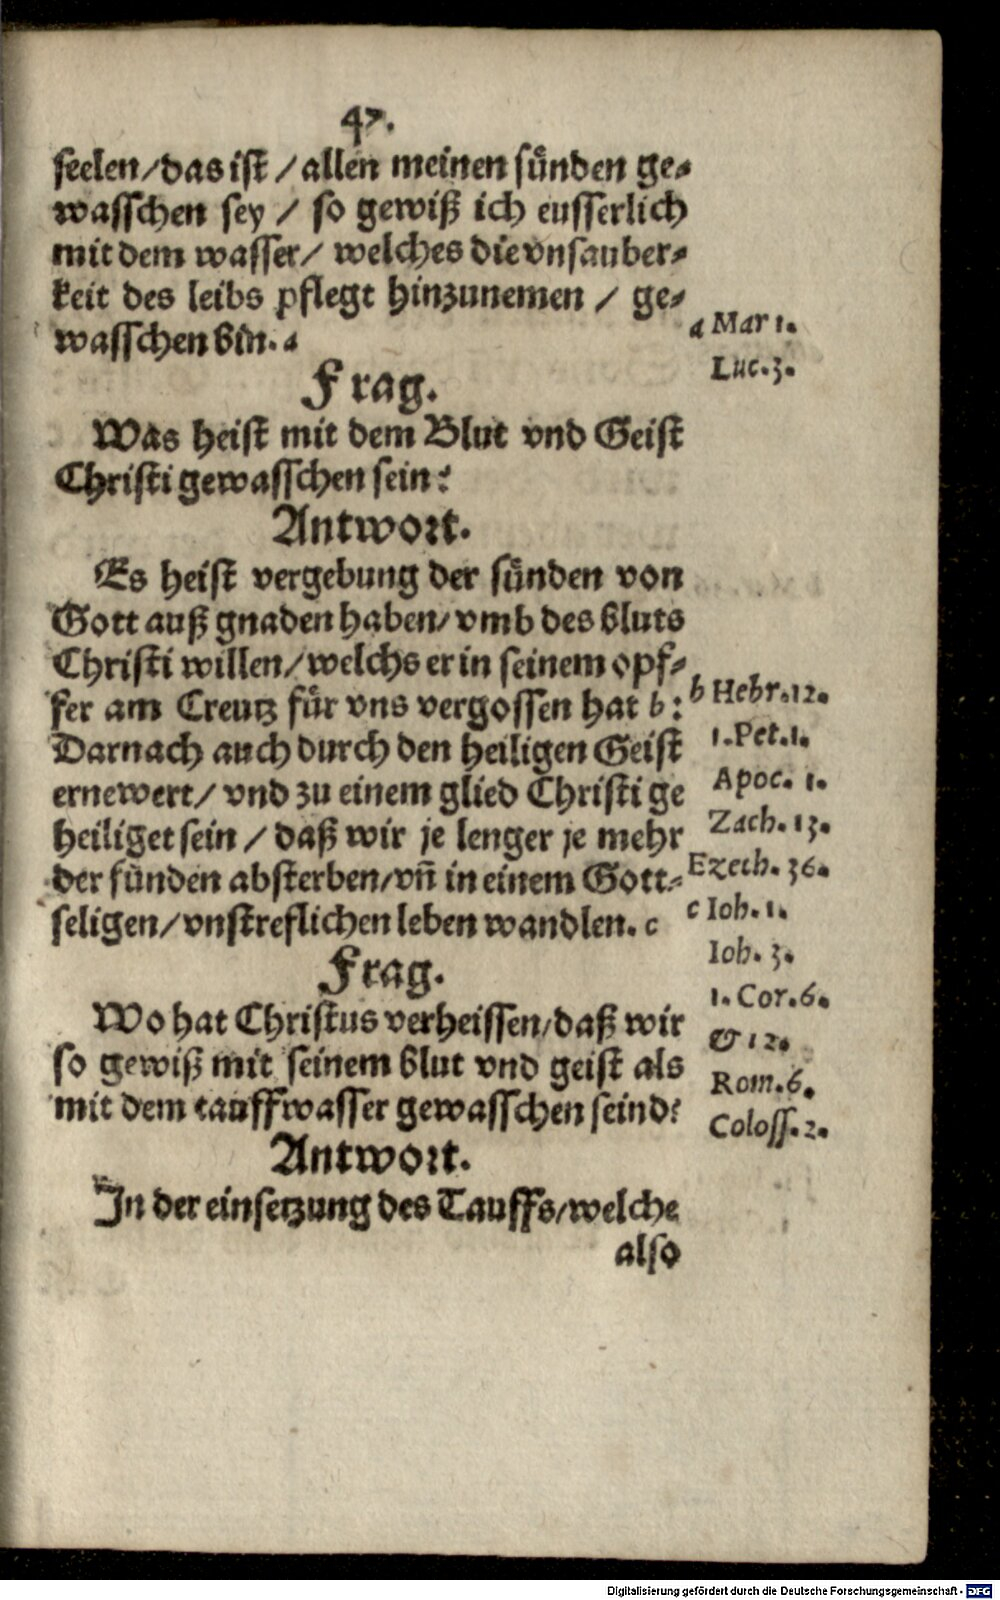 47.
seelen/das ist/allen meinen sünden ge-
wasschen sey/ so gewiß ich eusserlich
mit dem wasser/ welches die vnsauber-
keit des leibs pflegt hinzunemen/ ge-
wasschen bin. a
a Mar 1.
Luc. 3.
Frag.
Was heist mit dem Blut vnd Geist
Christi gewasschen sein?
Antwort.
Es heist vergebung der sünden von
Gott auß gnaden haben/vmb des bluts
Christi willen/welchs er in seinem opf-
fer am Creutz für vns vergossen hat b:
Darnach auch durch den heiligen Geist
ernewert/vnd zu einem glied Christi ge
heiliget sein/ daß wir je lenger je mehr
der sünden absterben/vñ in einem Gott-
seligen/vnstreflichen leben wandlen. c
b Hebr. 12.
1. Pet. 1.
Apoc. 1.
Zach. 13.
Ezech. 36.
c Ioh. 1.
Ioh. 3.
1. Cor. 6.
& 12.
Rom. 6.
Coloss. 2.
Frag.
Wo hat Christus verheissen/daß wir
so gewiß mit seinem blut vnd geist als
mit dem tauffwasser gewasschen seind?
Antwort.
In der einsetzung des Tauffs/welche
also
Digitalisierung gefördert durch die Deutsche Forschungsgemeinschaft - DFG